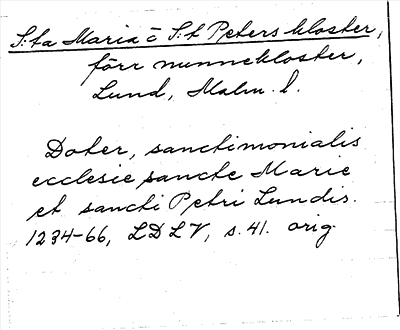 S:ta Maria o S:t Peters kloster,
förr nunnekloster,
Lund, Malm. l.
Doter, sanctimonialis
ecclesie sancte Marie
et sancti Petri Lundis.
1234-66, LDLV, s. 41. orig